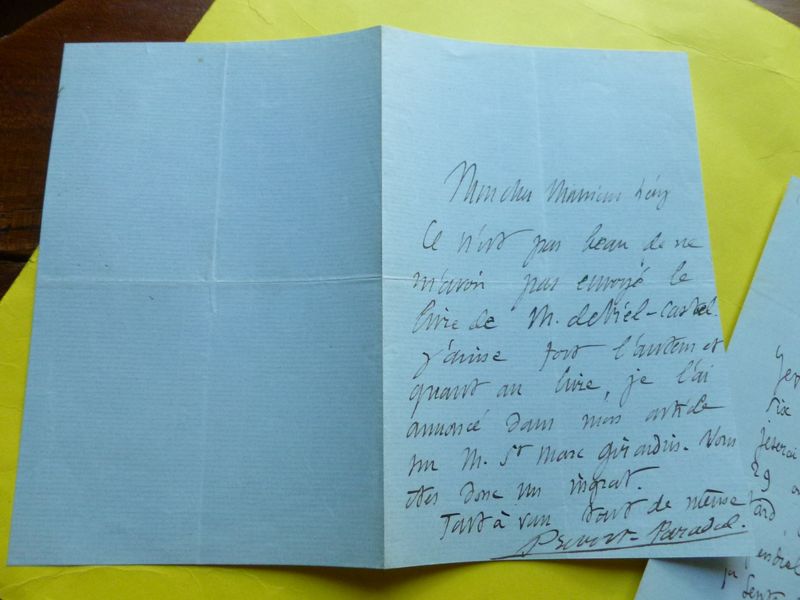 Mon cher Monsieur Lévy
Ce n'est pas beau de ne
m'avoir pas envoyé le
livre de M. de Viel-Castel.
J'aime fort l'auteur et
quant au livre, je l'ai
annoncé dans mon article
sur M. St Marc Girardin. Vous
êtes donc un ingrat.
Tout à vous tout de même
Prevost-Paradol.
Six
29
tard